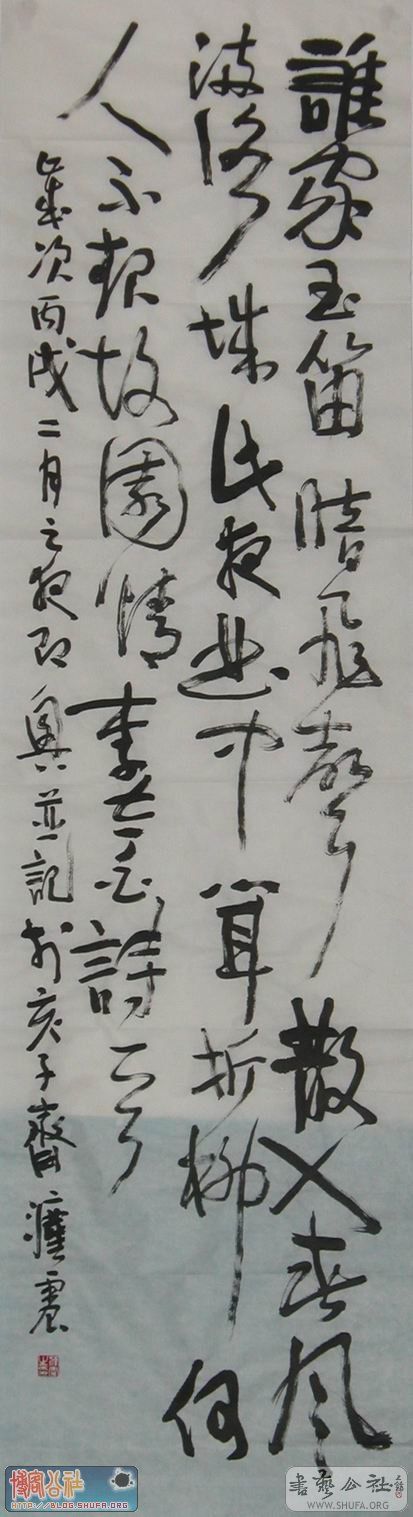 誰家玉笛暗飛聲散入春风
滿洛城此夜曲中聞折柳何
人不起故園情李太白詩一首
歲次丙戌二月之夜即興並記於亥子齋
博客公社
HTTP://BLOG.SHUFA.ORG
書藝公社
WWW.SHUFA.ORG